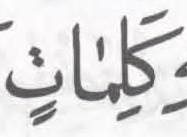 وَكَلِمٰاتٍ